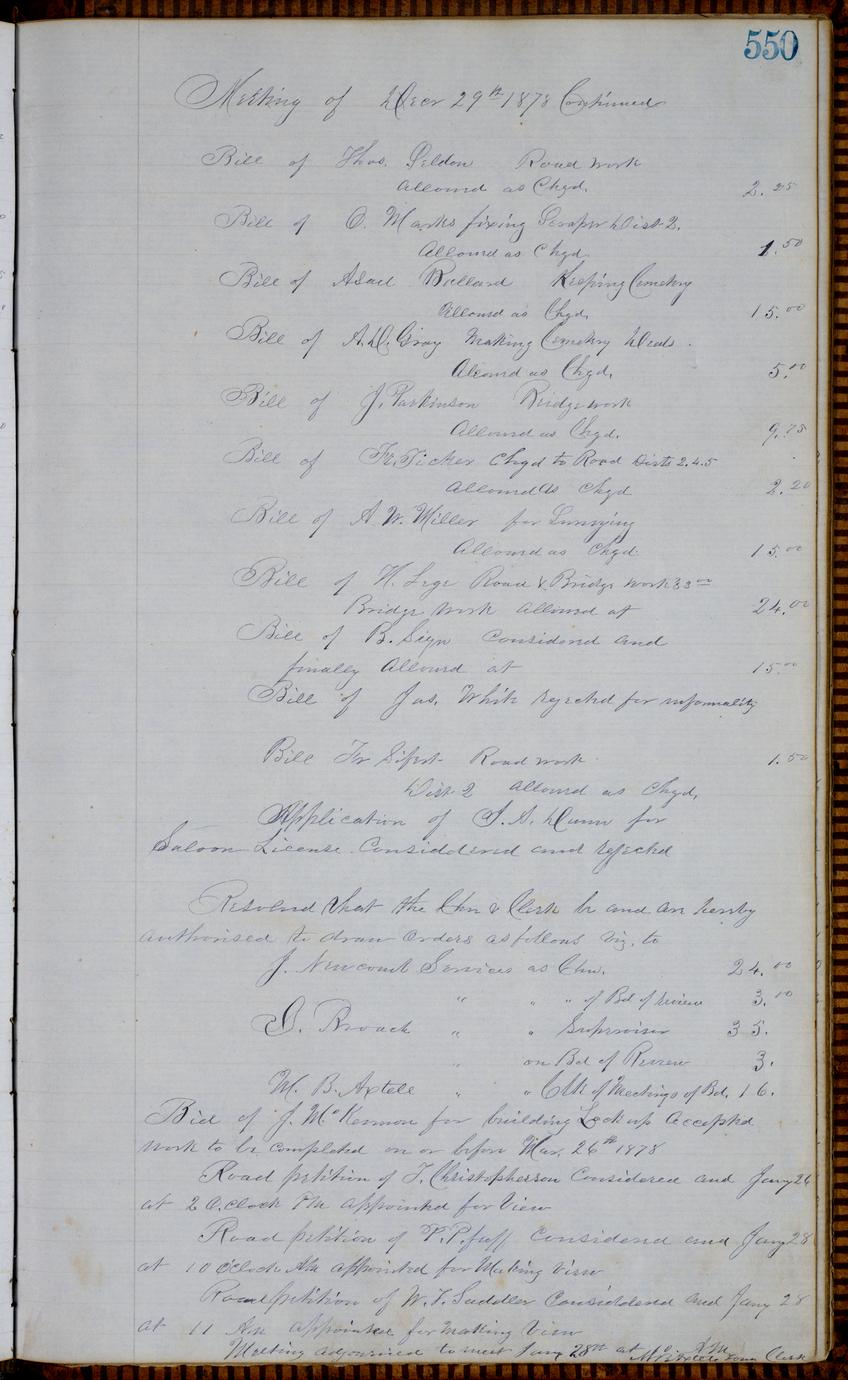 550
Meeting of Decr 29th 1878 Continued
Bill of Thos. Seldon Road work
Allowed as Chgd. 2.25
Bill of O. Marks fixing Scraper Dist 2.
Allowed as Chgd 1.50
Bill of Asael Bullard Keeping Cemetry
Allowed as Chgd. 15.00
Bill of A.D. Gray Making Cemetry Deeds.
Allowed as Chgd. 5.00
Bill of J. Parkinson Bridge work
Allowed as Chgd. 9.75
Bill of Fr. Ticker Chgd to Road Dists 2.4.5
Allowed As Chgd 2.20
Bill of A. W. Miller for Surveying
Allowed as Chgd 15.00
Bill of H. Lege Road & Bridge work 33.00
Bridge work allowed at 24.00
Bill of B. Sign Considered and
finally Allowed at 15.00
Bill of Jas. White rejected for informality
Bill Fr Road work 1.50
Dist 2 allowed as Chgd.
Application of S. A. Dunn for
Saloon License Considdered and rejected
Resolved that the Chn & Clerk be and are hereby
authorised to draw orders as follows viz. to
J. Newcomb Services as Chn. 24.00
" " " of Bd of review 3.00
S. Broack " " Supervisor 35.
" on Bd of Review 3.
W. B. Axtell " " Clk of Meetings of Bd. 16.
Bid of J. McKernon for building Lock up accepted
work to be completed on or before Mar. 26th 1878
Road petition of T. Christopherson Considered and Jany 26
at 2 O.clock PM appointed for View
Road petition of P. Pfaff Considered and Jany 28
at 10 oclock AM appointed for Making View
Road petition of W. T. Saddler Considdered and Jany 28
at 11 Am appointed for making View
Meeting adjourned to meet Jany 28th at Town Clerk